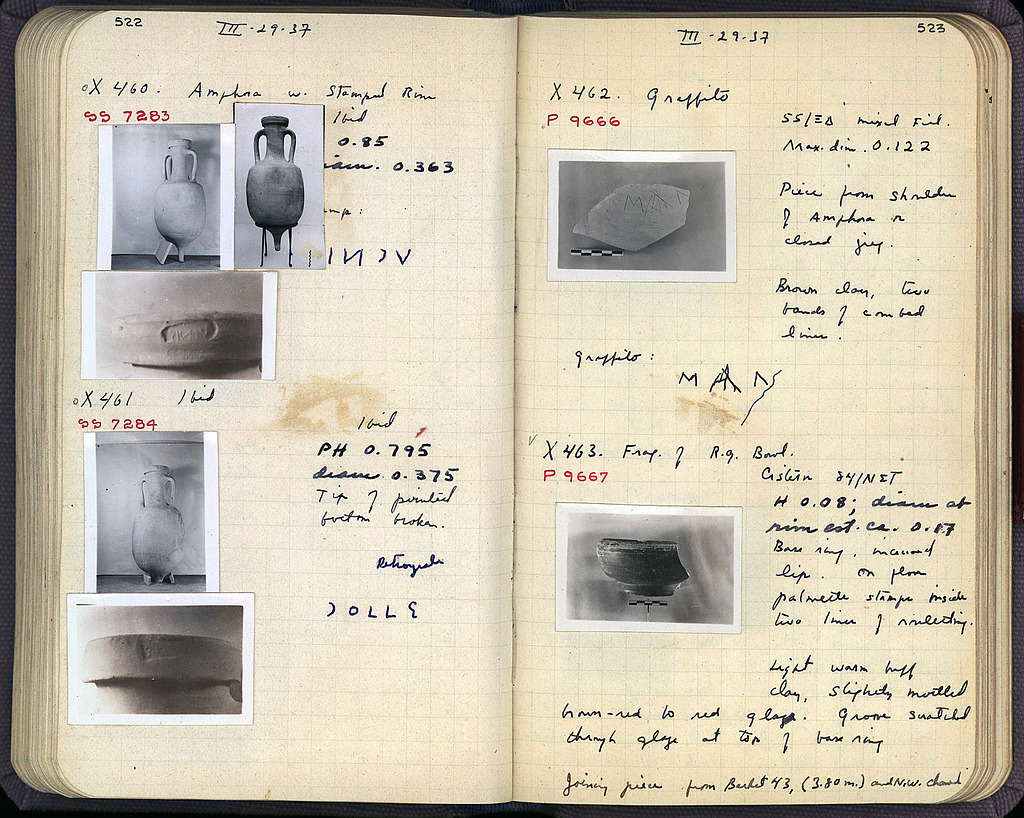 522
III-29-37
X 460. Amphora w. Stamped Rim
SS 7283
Ibid
0.85
diam. 0.363
X 461 Ibid
SS 7284
Ibid
PH 0.795
diam 0.375
Tip of pointed
bottom broken.
Retrograde
523
III-29-37
X 462. Graffito
P 9666
SS/ΞΔ mixed Fill.
Max. dim. 0.122
Piece from shoulder
of Amphora or
closed jug.
Brown clay, two
bands of combed
lines.
graffito:
X 463. Frag. of R.g. Bowl.
P 9667
Cistern 84/ΝΣΤ
H 0.08; diam at
rim est. ca. 0.17
Base ring, incurved
lip. On floor
palmette stamps inside
two lines of rouletting.
Light warm buff
clay, slightly mottled
brown-red to red glaze. Groove scratched
through glaze at top of base ring
Joining piece from Basket 43, (3.80 m.) and N.W. chamb